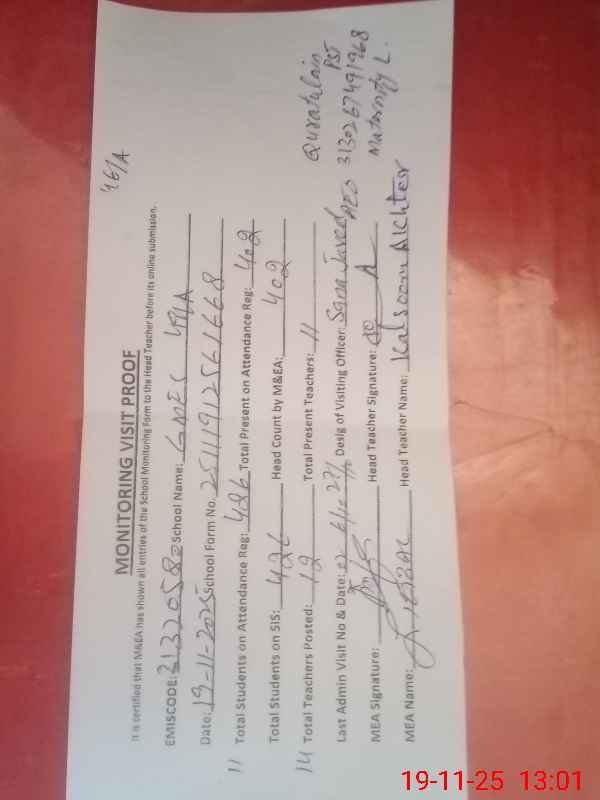 46/A
MONITORING VISIT PROOF
It is certified that M&EA has shown all entries of the School Monitoring Form to the Head Teacher before its online submission.
EMISCODE: 31320580 School Name: GMES 49/A
Date: 19-11-2025 School Form No. 2511191256166 8
11 Total Students on Attendance Reg: 426 Total Present on Attendance Reg: 402
Total Students on SIS: 426 Head Count by M&EA: 402
14 Total Teachers Posted: 12 Total Present Teachers: 11
Last Admin Visit No & Date: Desig of Visiting Officer: Sana Javed AEO
MEA Signature: Head Teacher Signature:
MEA Name: Head Teacher Name: Kalsoom Akhter
Quratulain
PST
3130267491968
Maternity L.
19-11-25 13:01